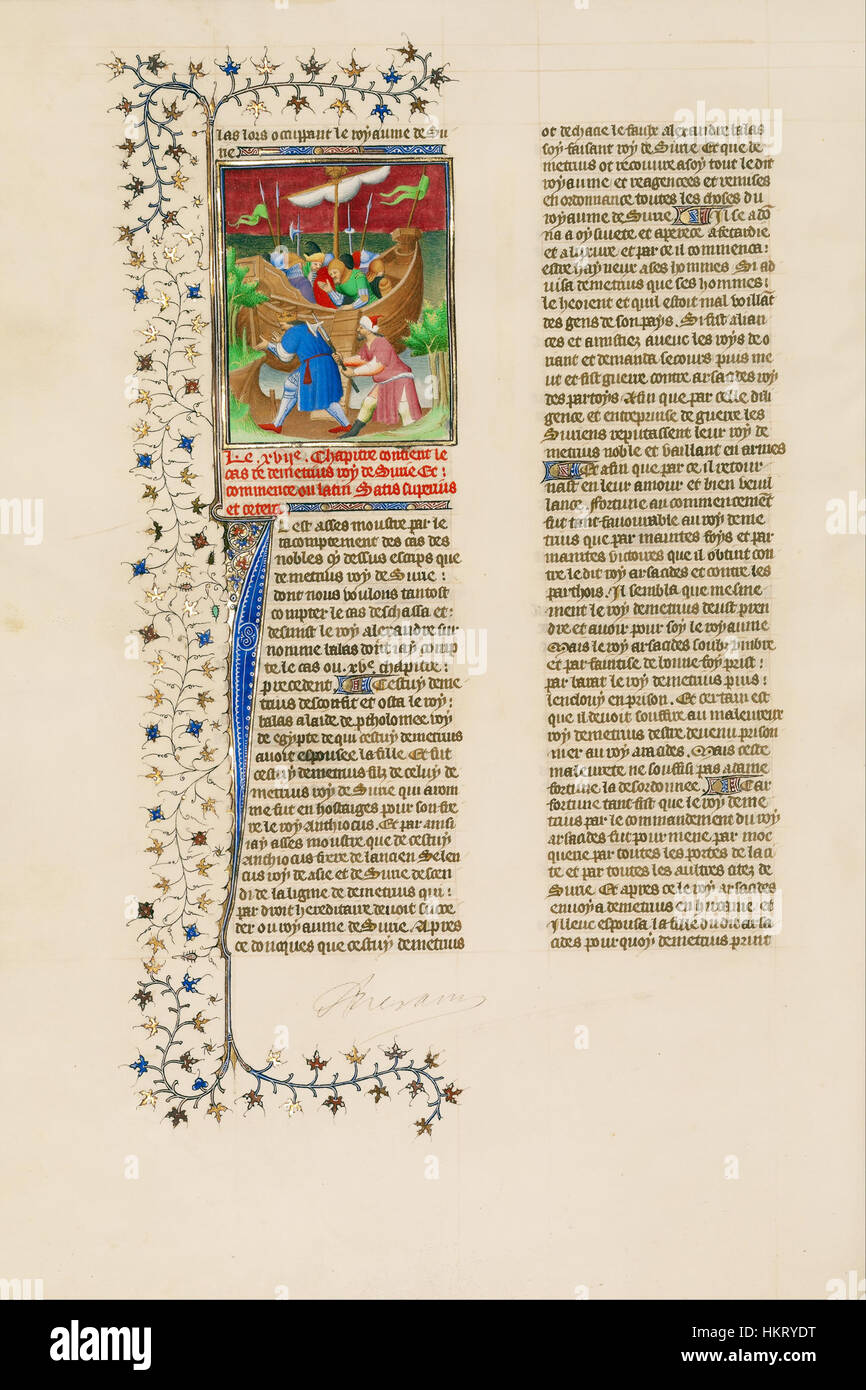 las lois occupant le royaume de Su
rie
Le .xviie. Chapitre contient le
cas de demetrius roy de Surie Et
commence ou latin Satis superius
et cetera
Il est asses moustre par le
racomptement des cas des
nobles cy dessus escrips que
demetrius roy de Surie
dont nous voulons tantost
compter le cas deschassa et
desmist le roy alexandre sur
nomme balas dont iay comp
te le cas ou .xve. chapitre
precedent Cestuy deme
trius desconfit et osta le roy
balas a laide de ptholomee roy
de egypte de qui cestuy demetrius
auoit espousee la fille Et fut
cestuy demetrius filz de celuy de
metrius roy de Surie qui a rom
me fut en hostaiges pour son fre
re le roy Anthiocus. Et par ainsi
iay asses moustre que de cestuy
Anthiocus frere de lancien Seleu
cus roy de asie et de Surie descen
di de la ligne de demetrius qui
par droit hereditaire deuoit succe
der ou royaume de Surie. Apres
ce doncques que cestuy demetrius
ot dechacie le faulx alexandre balas
soy faisant roy de Surie Et que de
metrius ot recouure a soy tout le dit
royaume et reagencees et remises
en ordonnance toutes les choses du
royaume de Surie Il se adon
na a oysiuete et a perece a fetardie
et a luxure et par ce il commenca
estre hayneux a ses hommes Si ad
uisa demetrius que ses hommes
le heoient et quil estoit mal voillant
des gens de son pays. Si fist alian
ces et amistiez auecques les roys de o
riant et demanda secours puis me
ut et fist guerre contre arsacides roy
des parthoys Afin que par celle dili
gence et entreprise de guerre les
Suriens reputassent leur roy de
metrius noble et vaillant en armes
Et afin que par ce il retour
nast en leur amour et bien veuil
lance. ffortune au commencement
fut tant fauourable au roy deme
trius que par maintes foys et par
maintes victoires que il obtint con
tre le dit roy arsacides et contre les
parthois. Il sembla que mesme
ment le roy demetrius deust pren
dre et auoir pour soy le royaume
Mais le roy arsacides soubz vmbre
et par faintise de bonne foy prist
par barat le roy demetrius puis
lendouy en prison. Et certain est
que il deuoit souffire au maleureux
roy demetrius destre deuenu prison
nier au roy aracides. Mais ceste
maleurete ne souffisi pas a dame
fortune la desordonnee. Car
fortune tant fist que le roy deme
trius par le commandement du roy
arsacides fut pourmene par moc
querie par toutes les portes de la ci
te et par toutes les aultres citez de
Surie. Et apres ce le roy arsacides
enuoya demetrius en hircanie et
illec espousa la fille du dit arsa
cides pour quoy demetrius print
alamy
Image ID: HKRYDT
www.alamy.com